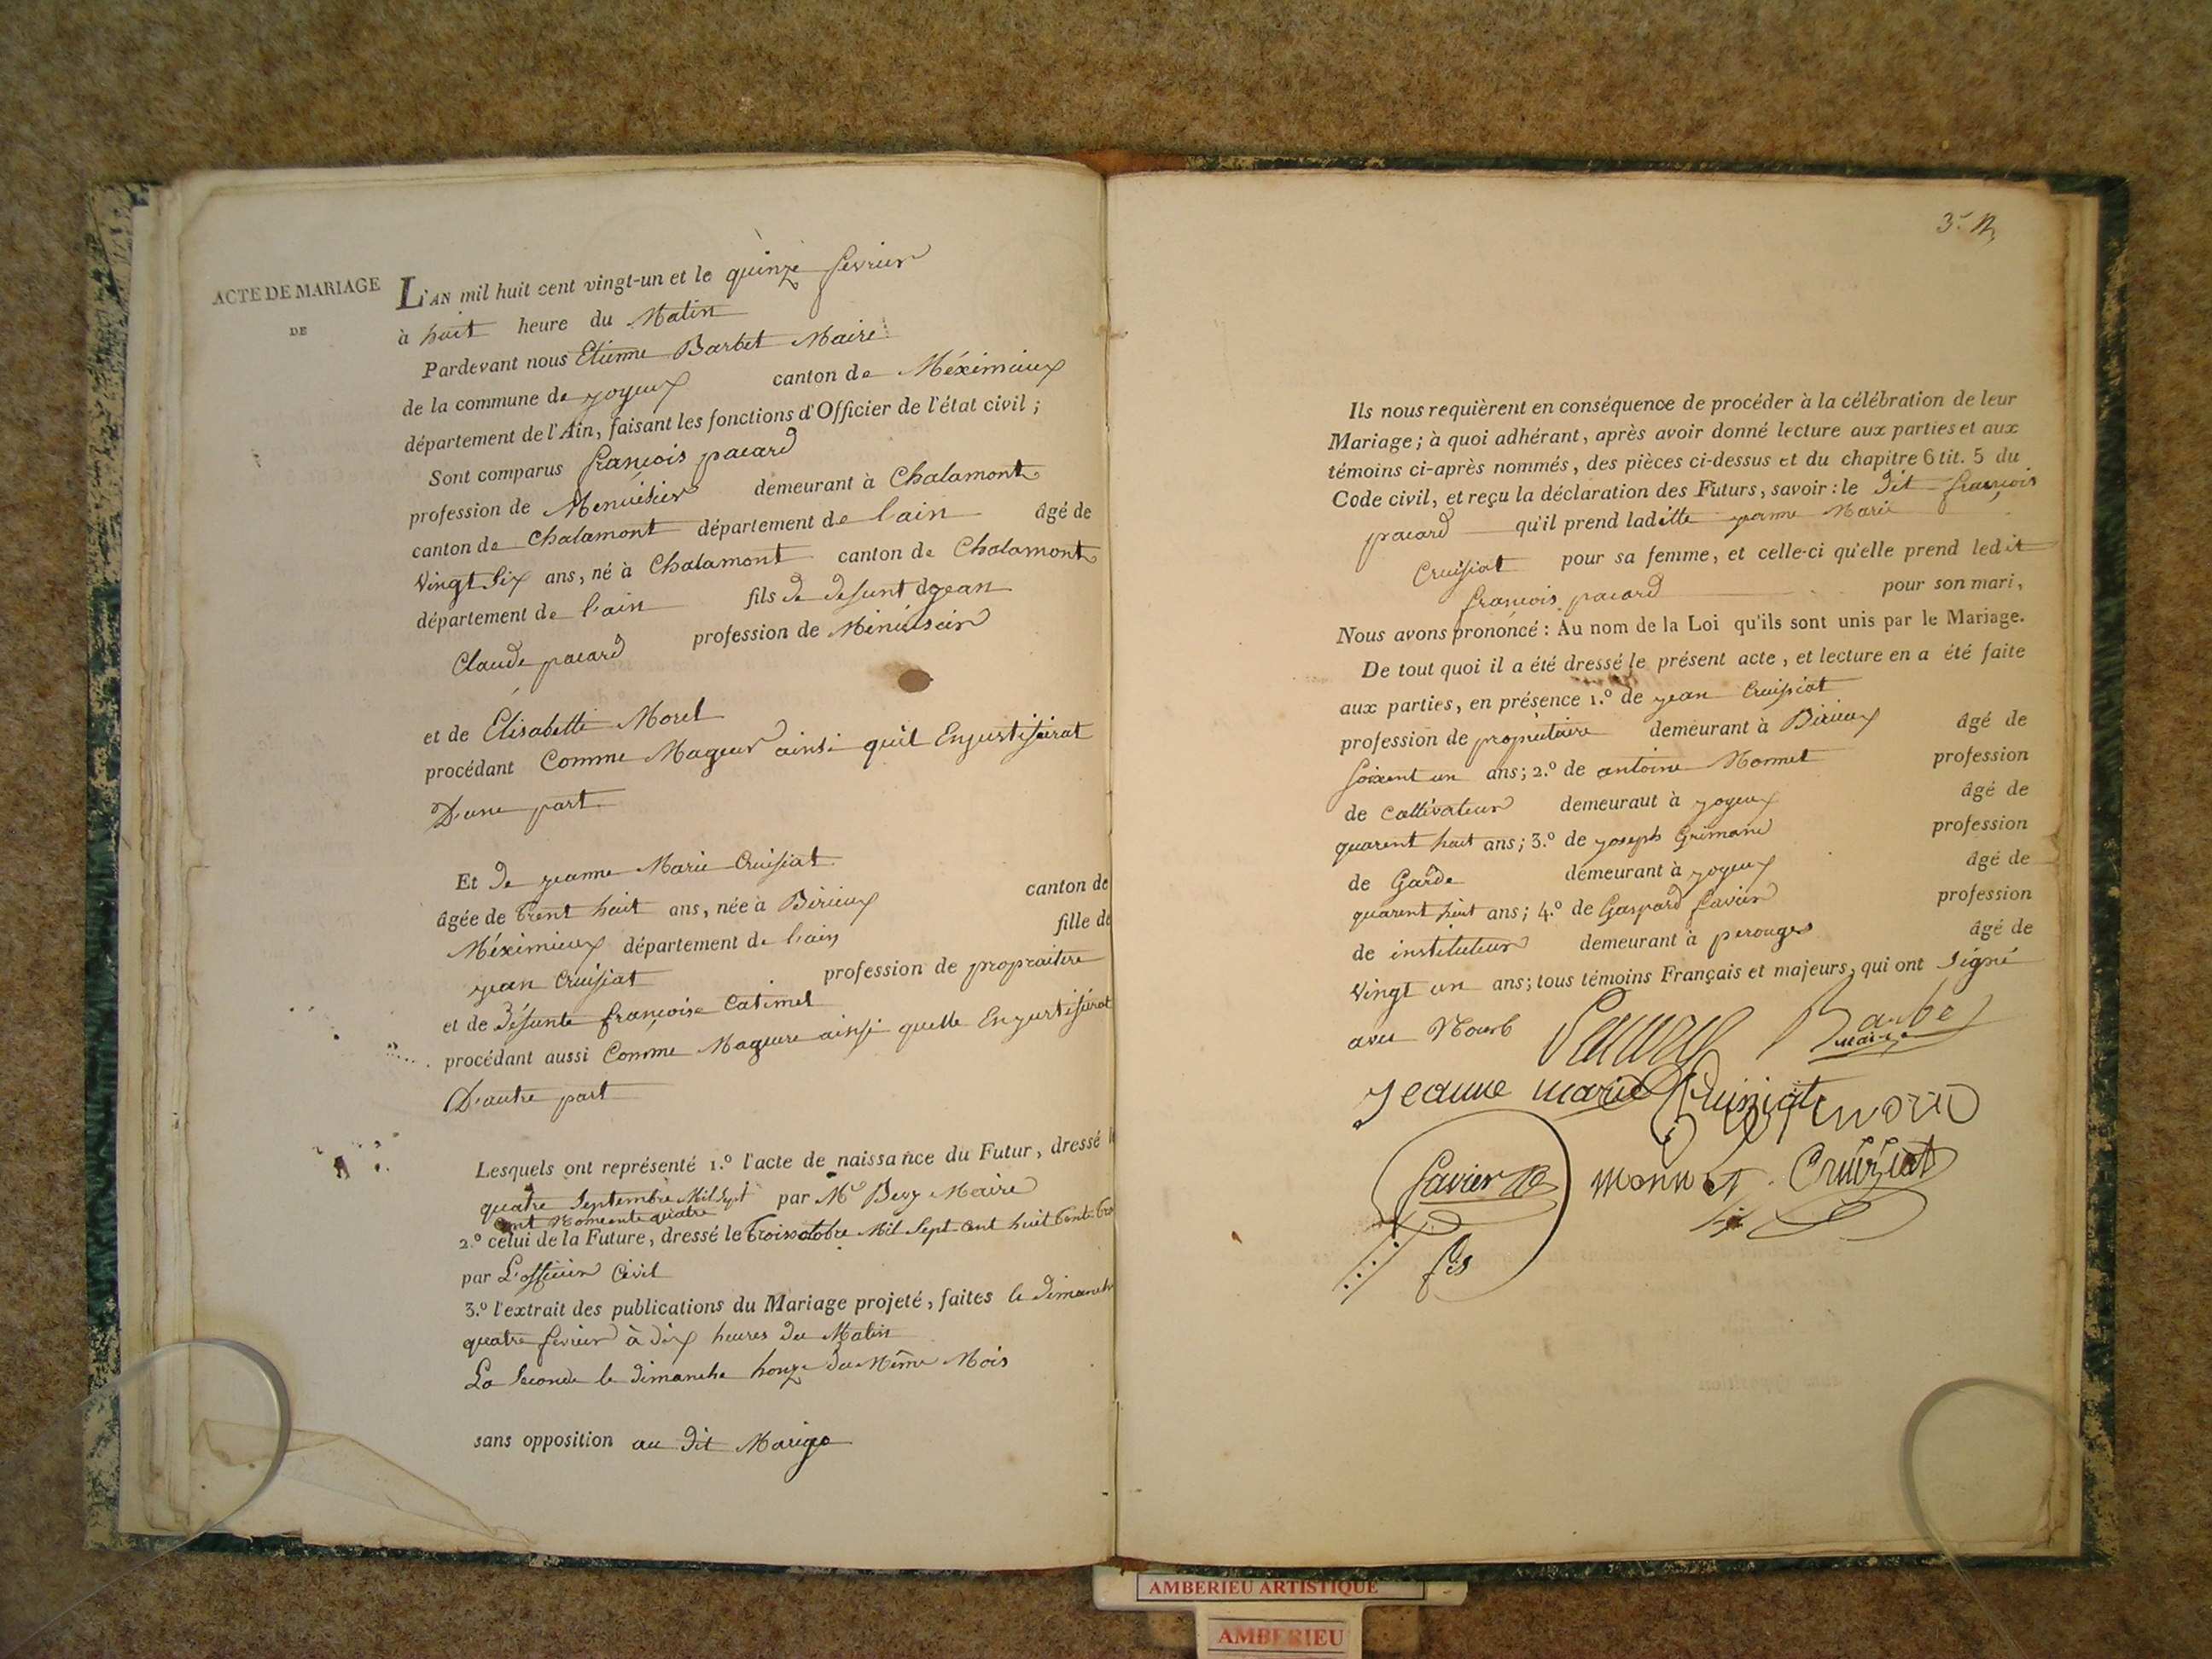 ACTE DE MARIAGE
DE
L'AN mil huit cent vingt-un et le quinze fevrier
à huit heure du Matin
Pardevant nous Etienne Barbet Maire
de la commune de joyeux canton de Méximieux
département de l'Ain, faisant les fonctions d'Officier de l'état civil ;
Sont comparus françois pacard
profession de Menuisier demeurant à Chalamont
canton de Chalamont département de lain âgé de
vingt Six ans, né à Chalamont canton de Chalamont
département de l'ain fils de defunt jean
Claude pacard profession de Menuisier
et de Elisabette Morel
procédant Comme Mageur ainsi quil Enjustifirat
D'une part
Et de jeanne Marie Cruisiat
âgée de trent huit ans, née à Birieux canton de
Méximieux département de l'ain fille de
jean Cruisiat profession de propraitere
et de défunte françoise Catimel
procédant aussi Comme Mageure ainsi quelle Enjustifirat
D'autre part
Lesquels ont représenté 1.º l'acte de naissance du Futur, dressé le
quatre Septembre Mil Sept par Mr Maire
Cent quatre
2.º celui de la Future, dressé le trois octobre Mil Sept Cent huit
par L'officier Civil
3.º l'extrait des publications du Mariage projeté, faites le dimanche
quatre fevrier à dix heures du Matin
La Seconde le dimanche honze du Même Mois
sans opposition au dit Mariage
3.
Ils nous requièrent en conséquence de procéder à la célébration de leur
Mariage ; à quoi adhérant, après avoir donné lecture aux parties et aux
témoins ci-après nommés, des pièces ci-dessus et du chapitre 6 tit. 5 du
Code civil, et reçu la déclaration des Futurs, savoir : le dit françois
pacard qu'il prend laditte jeanne Marie
Cruisiat pour sa femme, et celle-ci qu'elle prend ledit
françois pacard pour son mari,
Nous avons prononcé : Au nom de la Loi qu'ils sont unis par le Mariage.
De tout quoi il a été dressé le présent acte, et lecture en a été faite
aux parties, en présence 1.º de jean Cruisiat
profession de propriétaire demeurant à Birieux âgé de
soixent un ans; 2.º de antoine Monnet profession
de Cultivateur demeuraut à joyeux âgé de
quarent huit ans; 3.º de joseph Grimand profession
de Garde demeurant à joyeux âgé de
quarent huit ans; 4.º de Gaspard favier profession
de instituteur demeurant à perouges âgé de
vingt un ans; tous témoins Français et majeurs, qui ont signé
avec Nous
Barbet
maire
jeanne marie Cruisiat
favier monnet Cruiziat
fis
AMBERIEU ARTISTIQUE
AMBERIEU